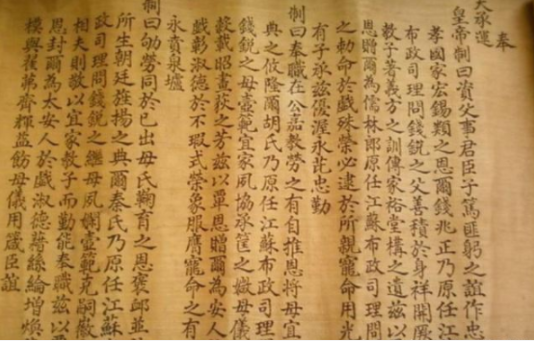 奉
天承運
皇帝制曰資父事君臣子篤匪躬之誼作忠
孝國家宏錫類之恩爾錢兆正乃原任江
布政司理問錢銳之父善積於身祥開厥
教子著義方之訓傳家裕堂構之遺茲以
恩贈爾為儒林郎原任江蘇布政司理問
之勅命於戲殊榮必逮於所親寵命用光
有子承茲優渥永茈忠勤
制曰奉職在公嘉教勞之有自推恩將母宜
典之攸隆爾胡氏乃原任江蘇布政司理
錢銳之母壼範宜家夙協承筐之媺母儀
穀載昭畫荻之芳茲以覃恩贈爾為安人
戲彰淑德於不瑕式榮象服膺寵命之有
永賁泉壚
制曰劬勞同於已出母氏鞠育之恩褒卹並
所生朝廷旌揚之典爾秦氏乃原任江蘇
政司理問錢銳之繼母夙嫻壼範克嗣徽
相夫則敬以宜家教子而勤能奉職茲以
恩封爾為太安人於戲淑德絲綸增煥
模與萑茀齊輝益飭母儀用箴臣誼